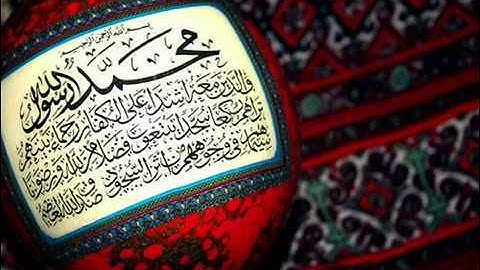 بسم الله الرحمن الرحيم
محمد رسول الله
والذين معه أشداء على الكفار رحماء بينهم
تراهم ركعا سجدا يبتغون فضلا من الله ورضوانا
سيماهم في وجوههم من أثر السجود